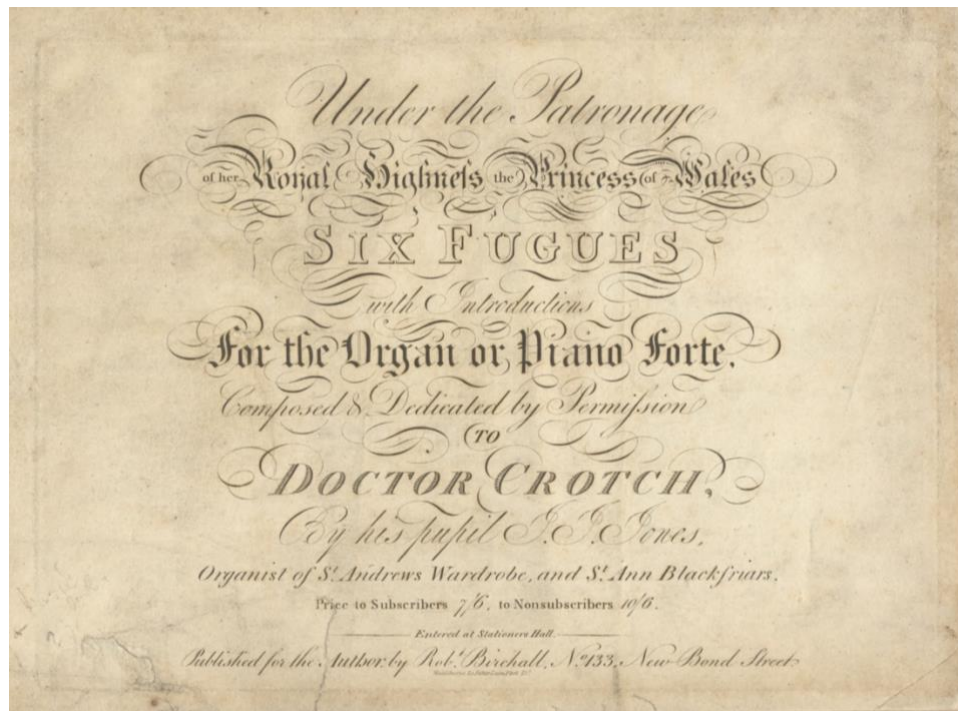 Under the Patronage
of her Royal Highneſs the Princess of Wales
SIX FUGUES
with Introductions
For the Organ or Piano Forte.
Composed & Dedicated by Permiſsion
TO
DOCTOR CROTCH,
By his pupil J. J. Jones,
Organist of St. Andrews Wardrobe, and St. Ann Blackfriars.
Price to Subscribers 7/6, to Nonsubscribers 10/6.
Entered at Stationers Hall.
Published for the Author, by Robt. Birchall, No. 133, New Bond Street